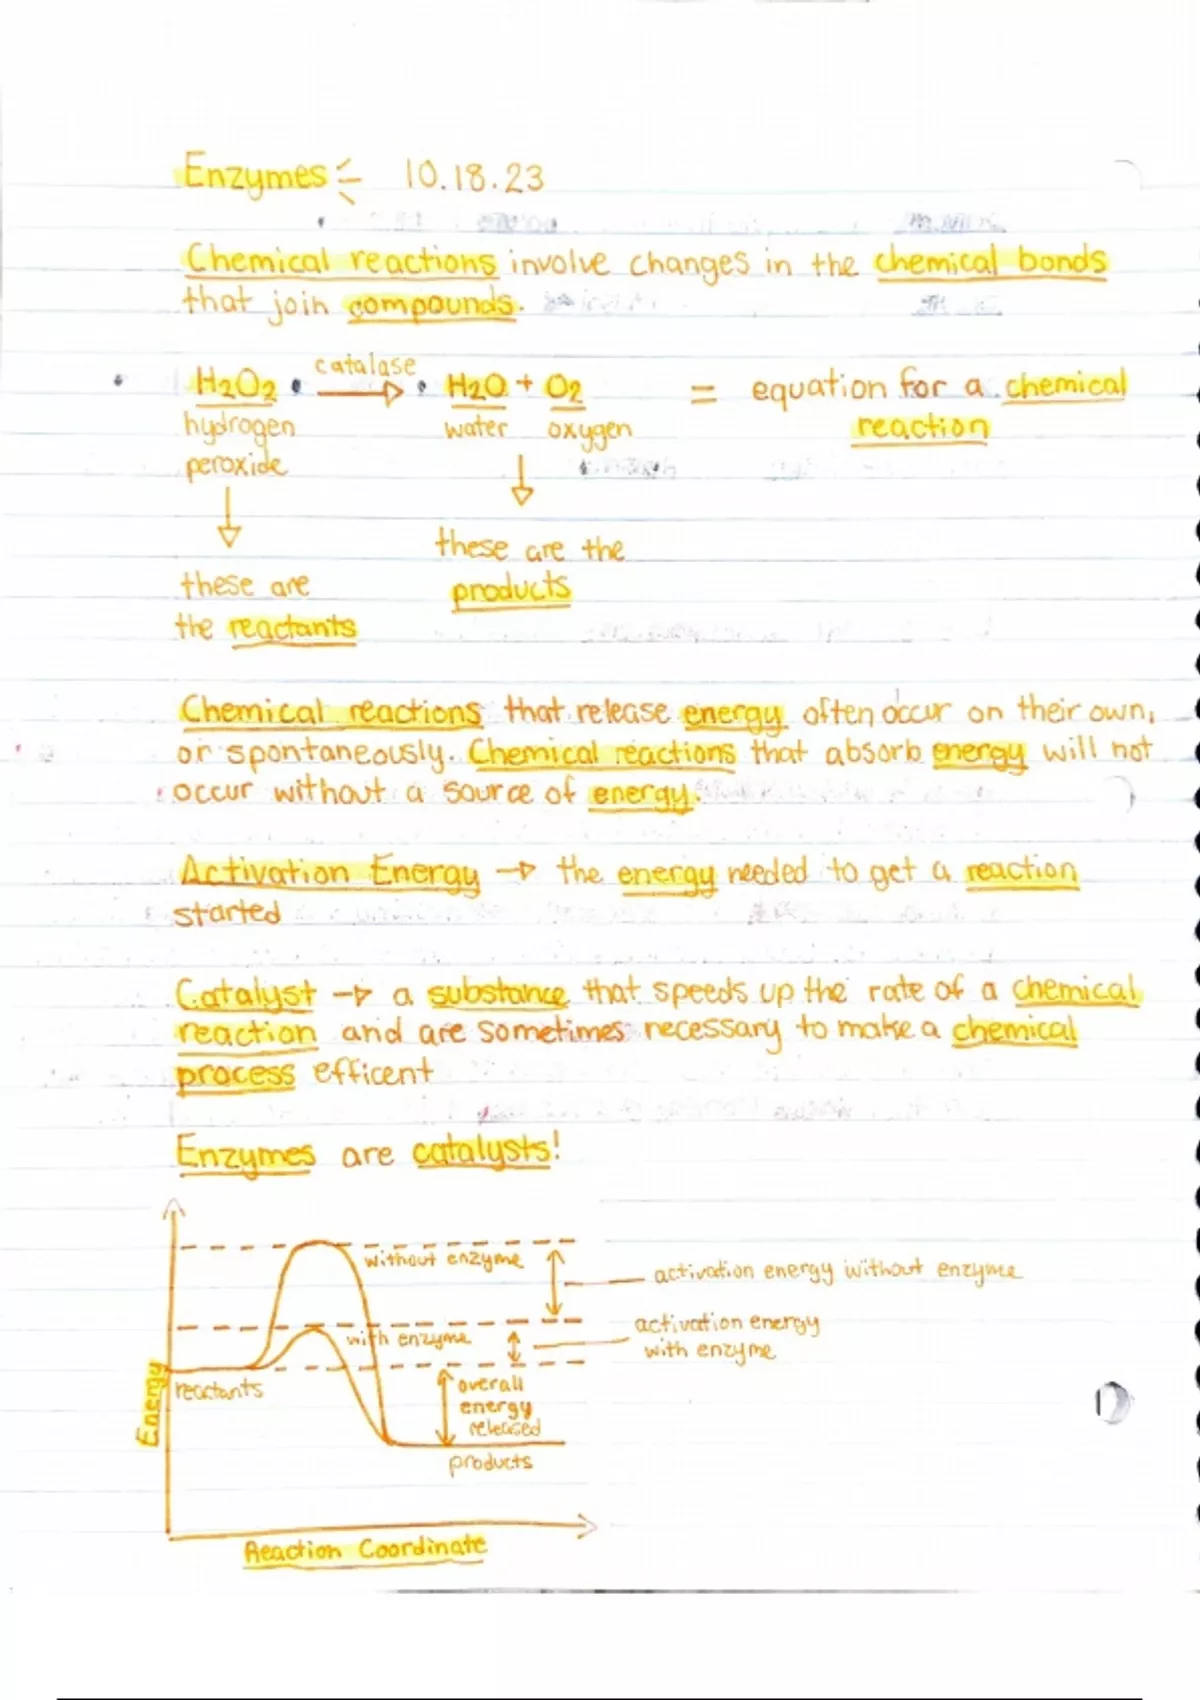 Enzymes 10.18.23
Chemical reactions involve changes in the chemical bonds
that join compounds.
catalase
H2O2 → H2O + O2 = equation for a chemical
hydrogen water oxygen reaction
peroxide
these are the
these are products
the reactants
Chemical reactions that release energy often occur on their own,
or spontaneously. Chemical reactions that absorb energy will not
occur without a source of energy.
Activation Energy → the energy needed to get a reaction
started
Catalyst → a substance that speeds up the rate of a chemical
reaction and are sometimes necessary to make a chemical
process efficent
Enzymes are catalysts!
without enzyme
activation energy without enzyme
with enzyme
activation energy
with enzyme
Energy
reactants
overall
energy
released
products
Reaction Coordinate